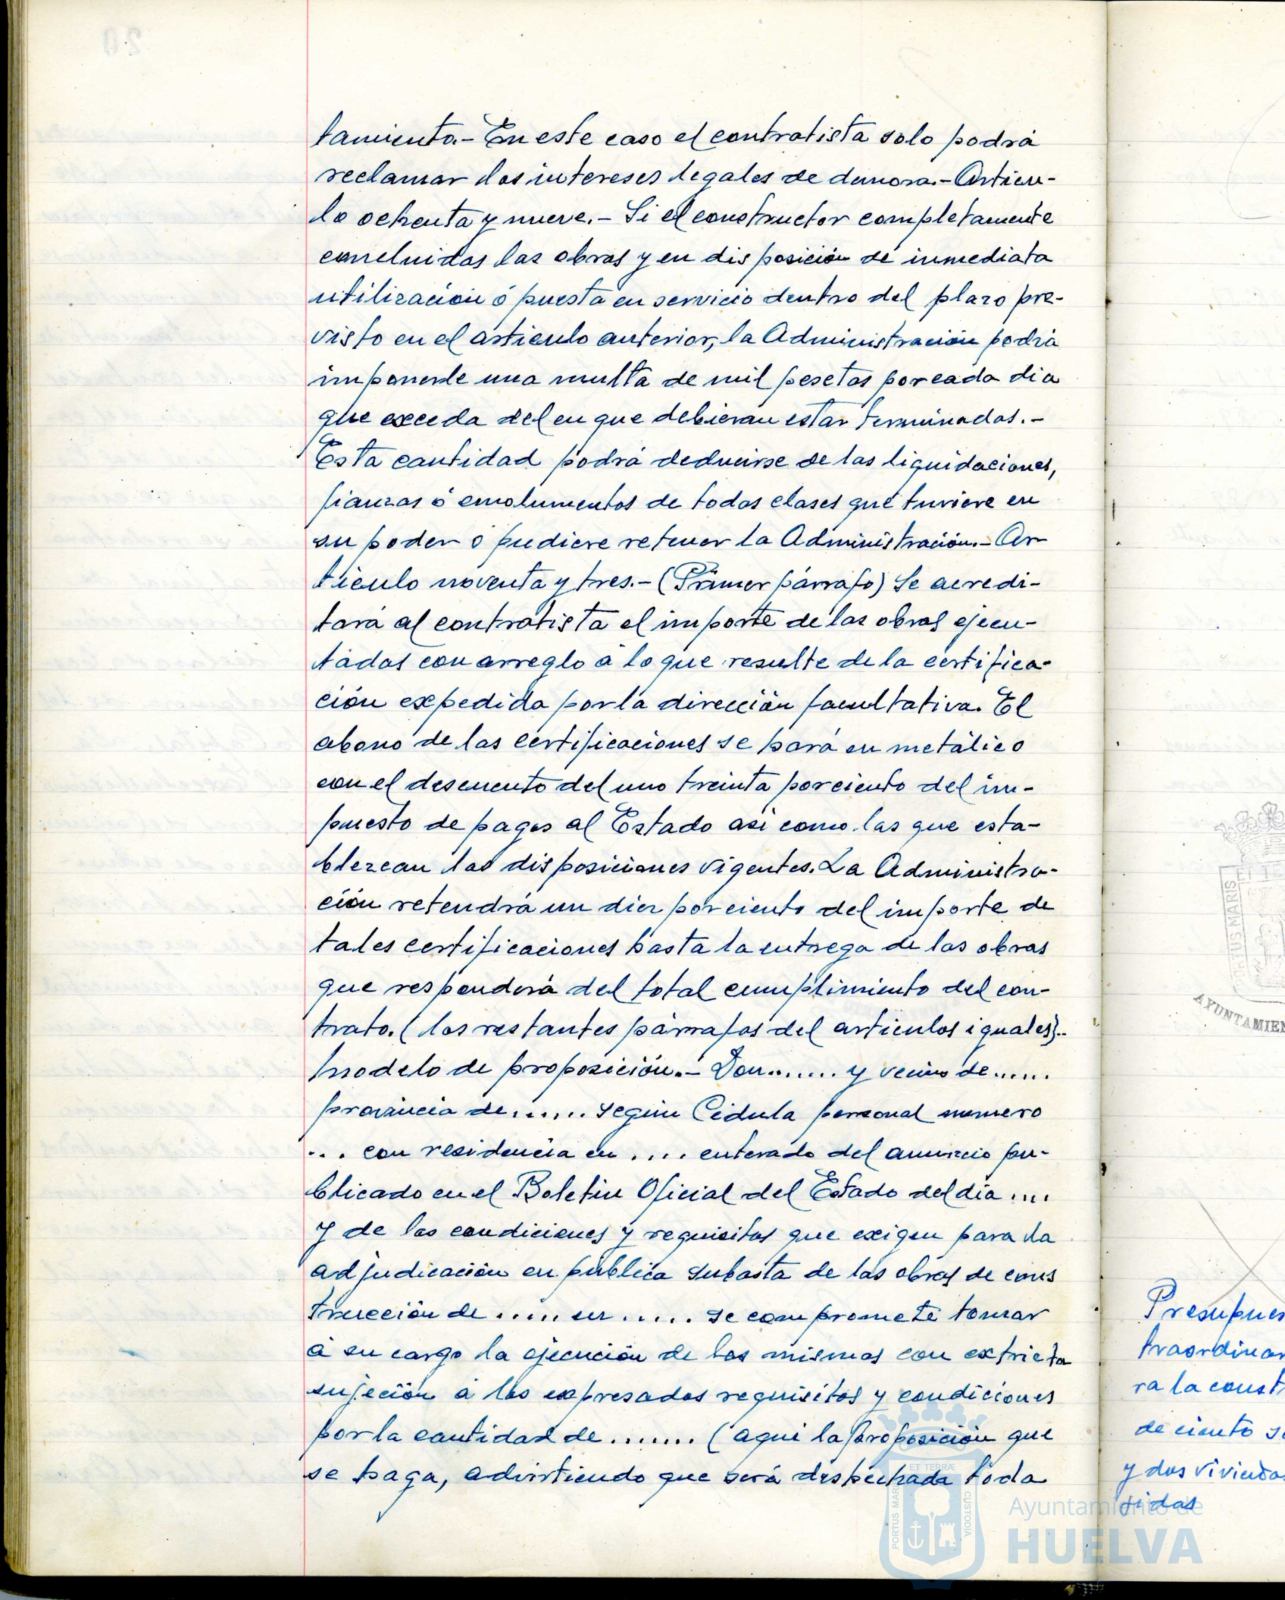 tamiento.- En este caso el contratista solo podrá
reclamar los intereses legales de demora.- Articu-
lo ochenta y nueve.- Si el constructor completamente
concluidas las obras y en disposición de inmediata
utilización ó puesta en servicio dentro del plazo pre-
visto en el articulo anterior, la Administración podrá
imponerle una multa de mil pesetas por cada dia
que exceda del en que debieran estar terminadas.-
Esta cantidad podrá deducirse de las liquidaciones,
fianzas ó emolumentos de todas clases que tuviere en
su poder ó pudiere retener la Administración.- Ar-
ticulo noventa y tres.- (Primer párrafo) Se acredi-
tará al contratista el importe de las obras ejecu-
tadas con arreglo á lo que resulte de la certifica-
ción expedida por la dirección facultativa. El
abono de las certificaciones se hará en metálico
con el descuento del uno treinta por ciento del im-
puesto de pagos al Estado asi como las que esta-
blezcan las disposiciones vigentes. La Administra-
ción retendrá un diez por ciento del importe de
tales certificaciones hasta la entrega de las obras
que responderá del total cumplimiento del con-
trato. (los restantes párrafos del articulos iguales).-
Modelo de proposición.- Don....... y vecino de......
provincia de...... según Cédula personal numero
... con residencia en .... enterado del anuncio pu-
blicado en el Boletin Oficial del Estado del dia ....
y de las condiciones y requisitos que exigen para la
adjudicación en pública subasta de las obras de cons
trucción de ..... en ..... se compromete tomar
á su cargo la ejecución de las mismas con extricta
sujeción á los expresados requisitos y condiciones
por la cantidad de ....... (aqui la proposición que
se haga, advirtiendo que será deshechada toda
Presupues
traordinar
ra la const
de ciento se
y dos vivienda
gidas
PORTUS MARIS
ET TERRAE
CUSTODIA
AYUNTAMIEN
Ayuntamiento de
HUELVA